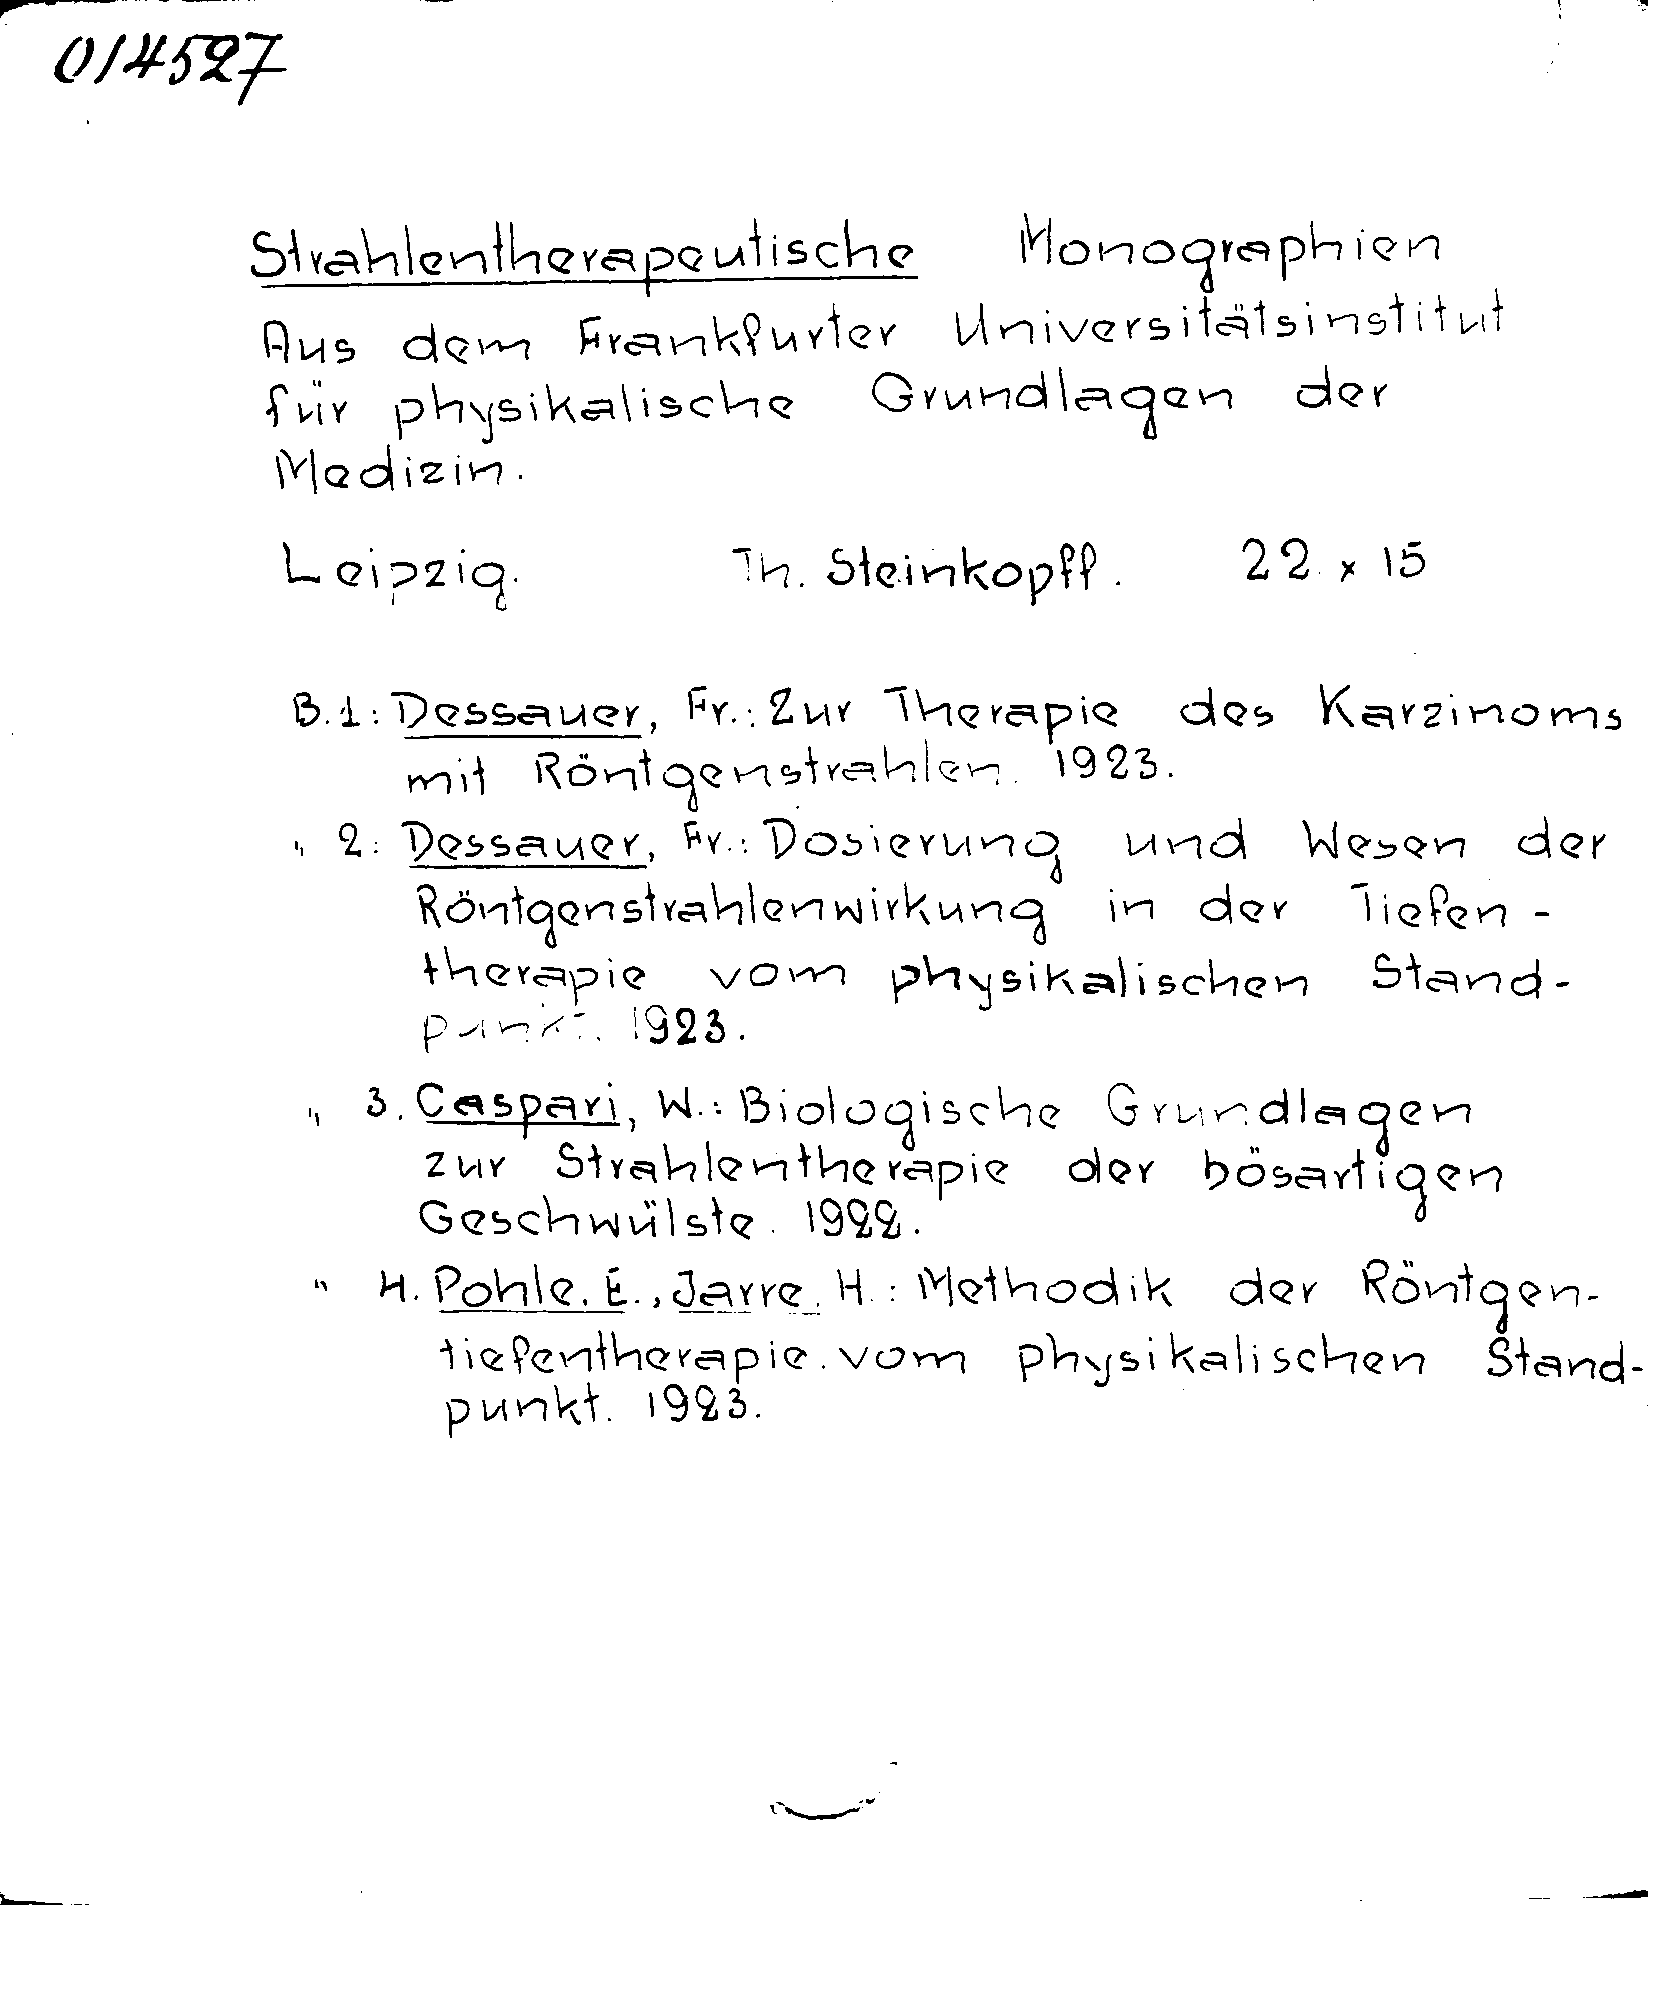 014527
Strahlentherapeutische Monographien
Aus dem Frankfurter Universitätsinstitut
für physikalische Grundlagen der
Medizin.
Leipzig. Th. Steinkopff. 22 x 15
B. 1: Dessauer, Fr.: Zur Therapie des Karzinoms
mit Röntgenstrahlen. 1923.
" 2: Dessauer, Fr.: Dosierung und Wesen der
Röntgenstrahlenwirkung in der Tiefen-
therapie vom physikalischen Stand-
punkt. 1923.
" 3. Caspari, W.: Biologische Grundlagen
zur Strahlentherapie der bösartigen
Geschwülste. 1922.
" 4. Pohle. E., Jarre. H.: Methodik der Röntgen-
tiefentherapie. vom physikalischen Stand-
punkt. 1923.